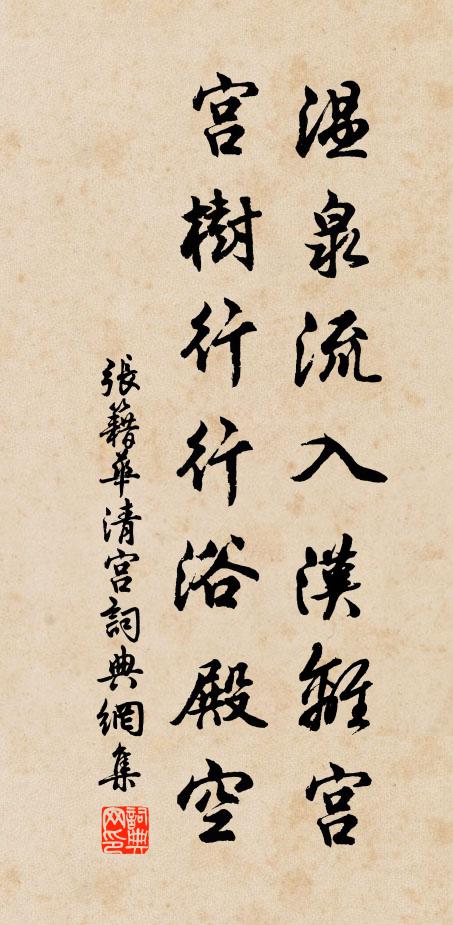 温泉流入漢離宮
宮樹行行浴殿空
張籍華清宮詞典網集
詞典网印